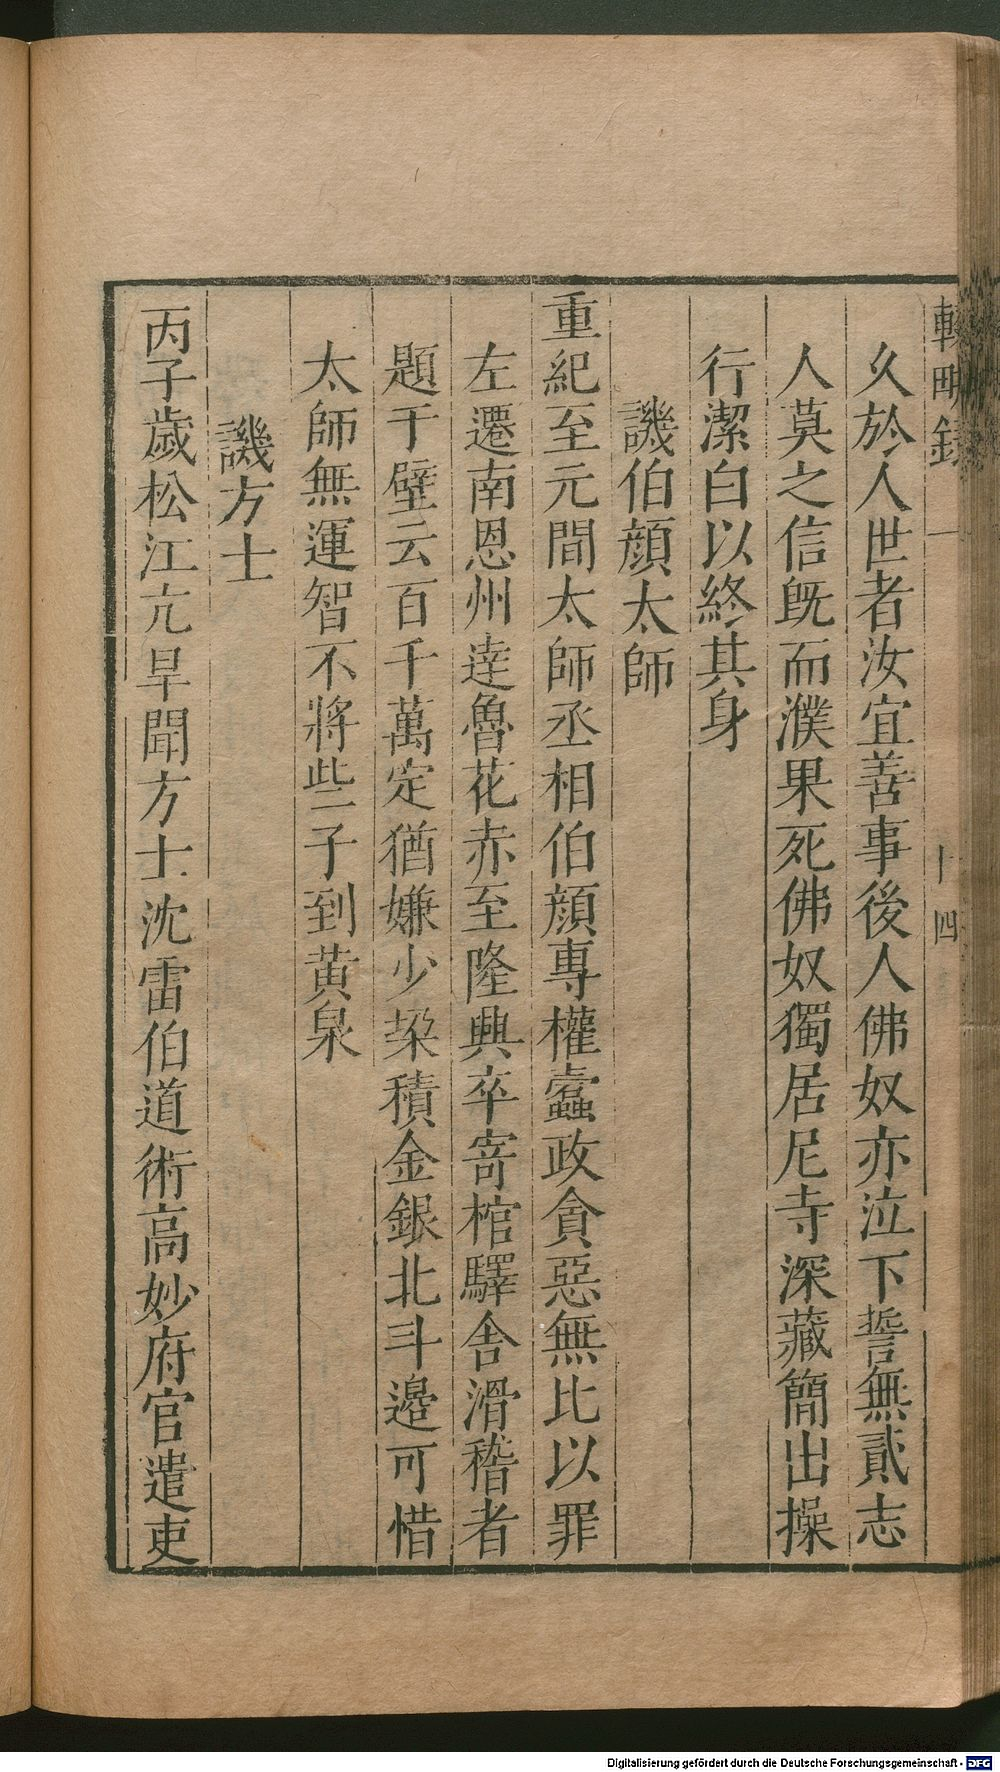 輟畊錄 一 十四
久於人世者汝宜善事後人佛奴亦泣下誓無貳志
人莫之信旣而濮果死佛奴獨居尼寺深藏簡出操
行潔白以終其身
譏伯顔太師
重紀至元間太師丞相伯顔專權蠧政貪惡無比以罪
左遷南恩州達魯花赤至隆興卒寄棺驛舍滑稽者
題于壁云百千萬定猶嫌少垜積金銀北斗邊可惜
太師無運智不將些子到黄泉
譏方士
丙子歲松江亢旱聞方士沈雷伯道術高妙府官遣吏
Digitalisierung gefördert durch die Deutsche Forschungsgemeinschaft - DFG